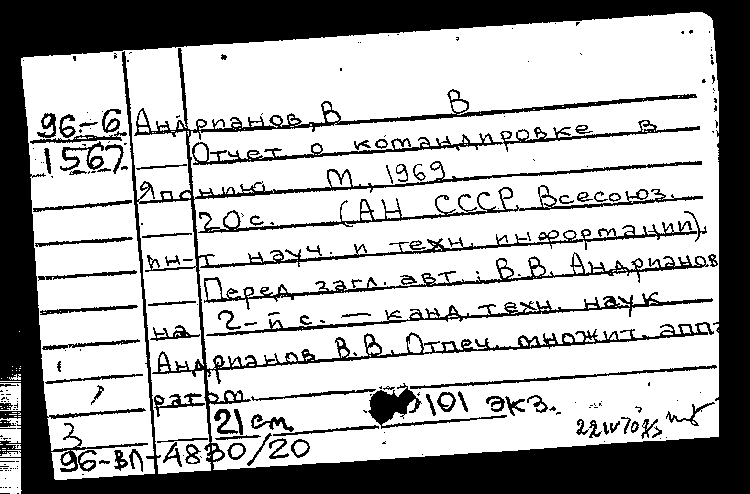 96-6 Андрианов, В В
1567 Отчет о командировке в
Японию. М., 1969.
20 с. (АН СССР. Всесоюз.
ин-т науч. и техн. информации).
Перед загл. авт.: В.В. Андрианов
на 2-й с. — канд. техн. наук
Андрианов В.В. Отпеч. множит. аппа
ратом.
21 см 101 экз.
3
96-ВЛ-4830/20